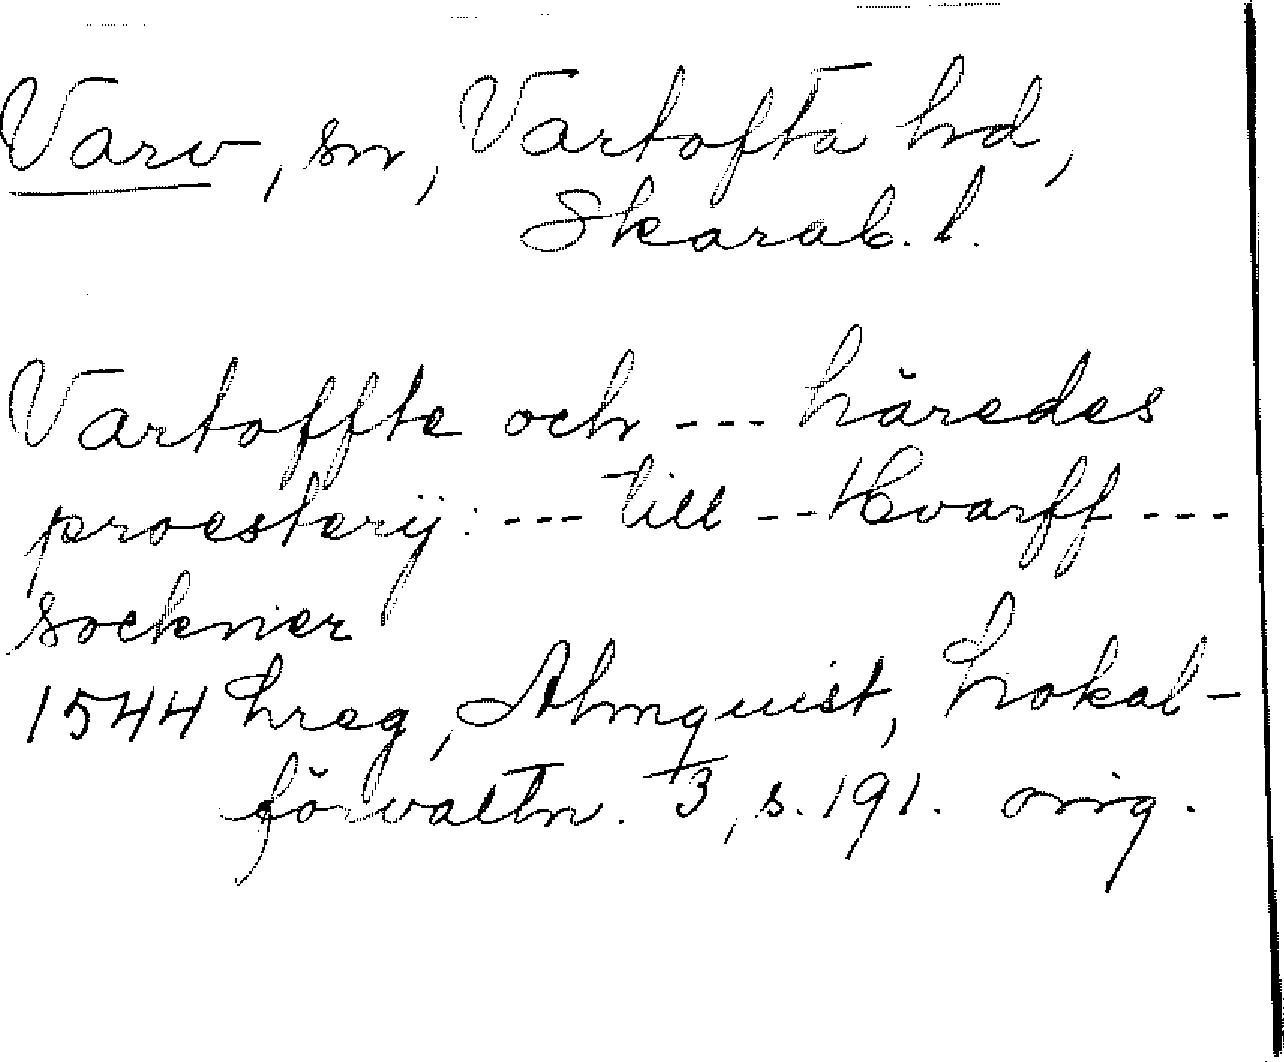 Varv, sn, Vartofta hd,
Skarab. l.
Vartoffte och --- häredes
proesterij: --- till -- Hvarff ---
sockner
1544 hreg, Almquist, Lokal-
förvaltn. 3, s. 191. orig.